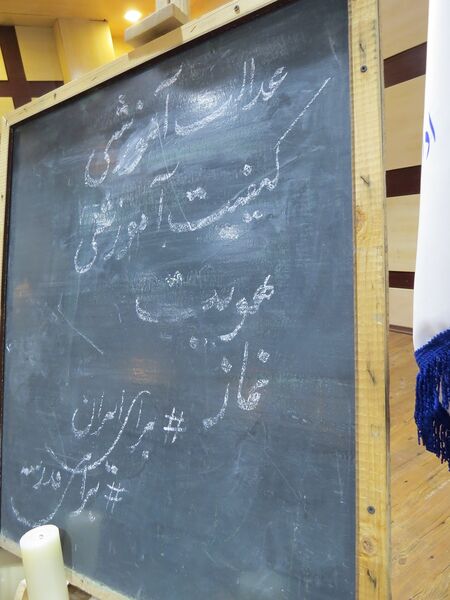 عدالت آموزشی
کیفیت آموزشی
هویت
نماز
#برای_ایران
#برای_مدرسه
او